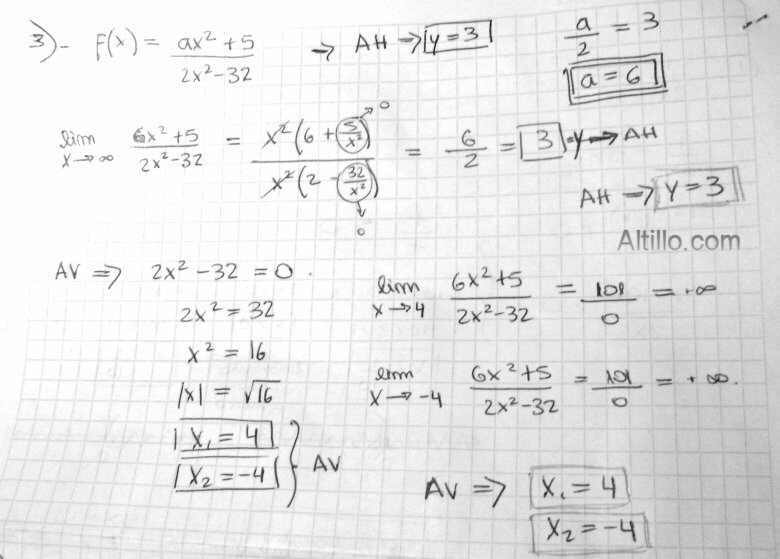 3)- F(x) = (ax² + 5)/(2x² - 32) → AH → y = 3 a/2 = 3
a = 6
lim x→∞ (6x² + 5)/(2x² - 32) = x²(6 + 5/x²)/x²(2 - 32/x²) = 6/2 = 3 = y → AH
0
0
AH → y = 3
Altillo.com
AV ⇒ 2x² - 32 = 0.
2x² = 32
x² = 16
|x| = √16
x₁ = 4
x₂ = -4
} AV
lim x→4 (6x² + 5)/(2x² - 32) = 101/0 = +∞
lim x→-4 (6x² + 5)/(2x² - 32) = 101/0 = +∞.
AV ⇒ x₁ = 4
x₂ = -4